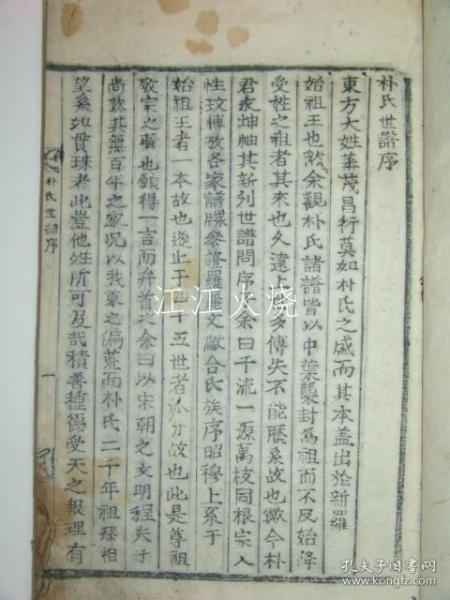 朴氏世譜序
東方大姓華茂昌衍莫如朴氏之盛而其本盖出於新羅
始祖王也然余觀朴氏諸譜皆以中葉襲封爲祖而不及始降
受姓之祖者其來也久遠上世多傳失不能歷系故也歟今朴
君東坤袖其新列世譜問序於余曰千流一源萬枝同根宗人
性玟博攷各家譜牒叅證羅麗文獻合氏族序昭穆上系于
始祖王者一本故也遂止于二十五世者派分故也此是尊祖
敬宗之義也願得一言而弁首之余曰以宋朝之文明程夫子
尚歎其無百年之家况以我東之偏荒而朴氏二千年祖孫相
望奚如貫珠者此豈他姓所可及哉積善種德受天之報理有
朴氏世譜序
一
江江火烧
孔夫子旧书网